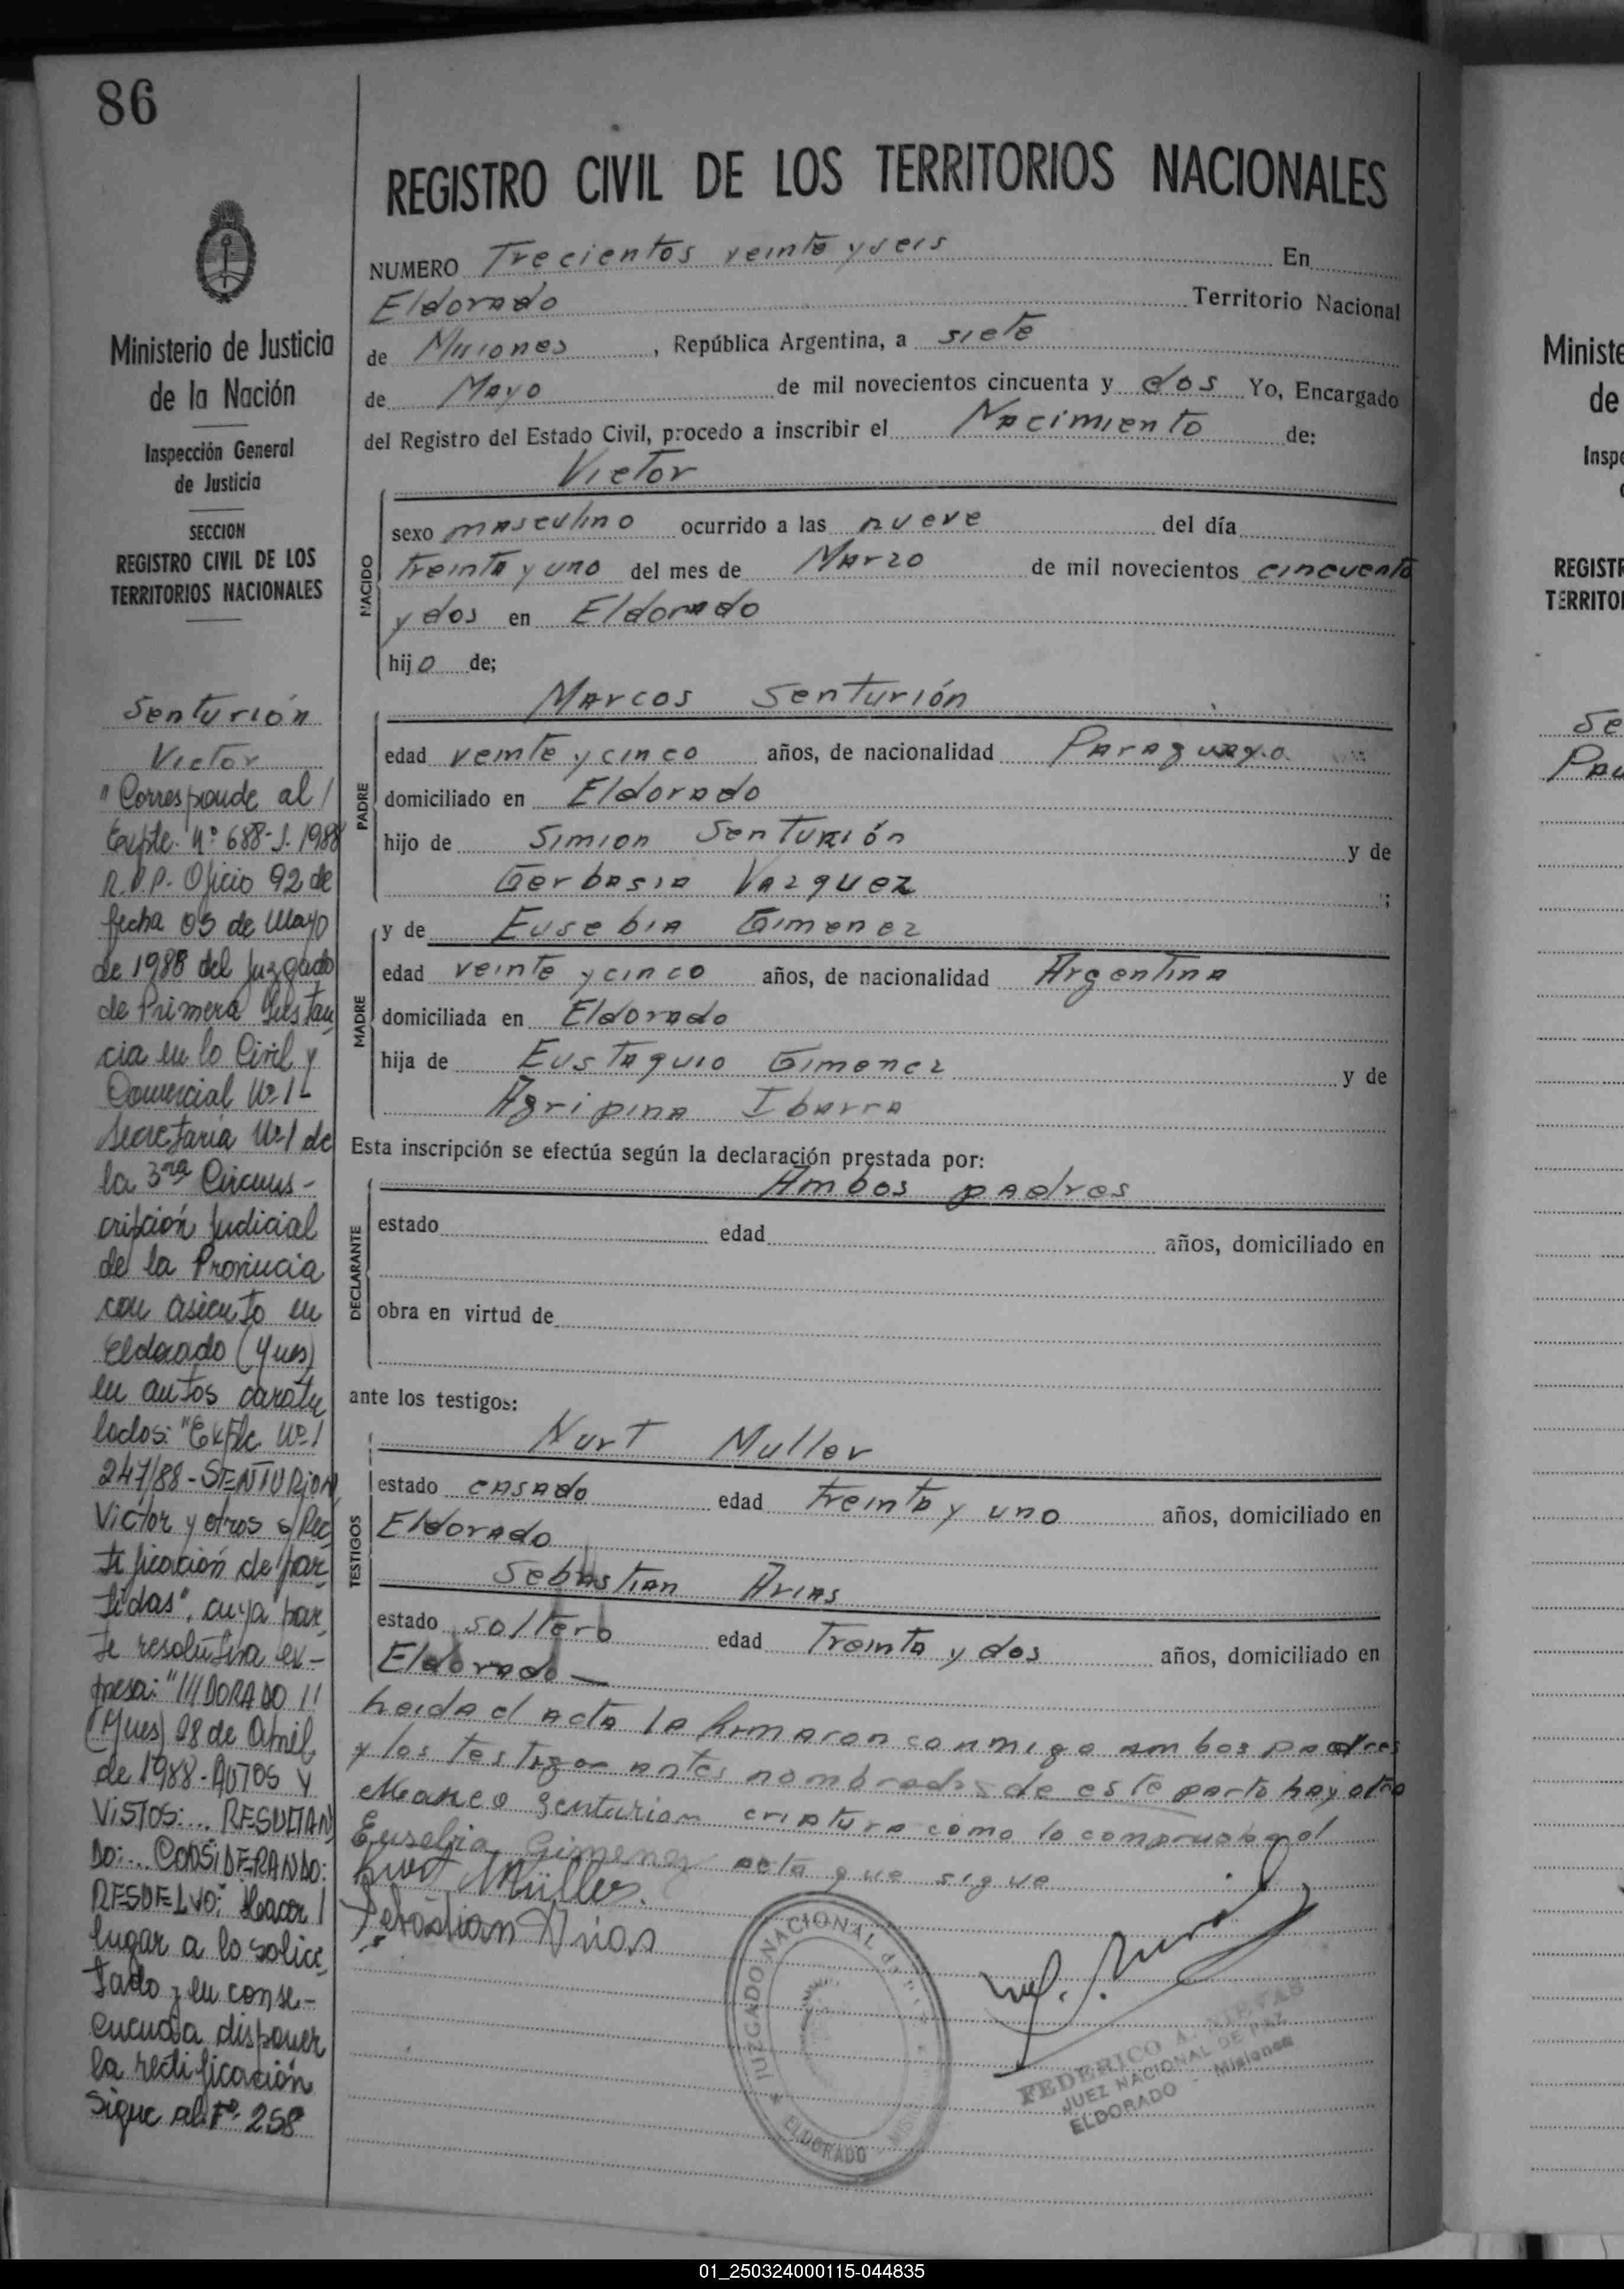 86
REGISTRO CIVIL DE LOS TERRITORIOS NACIONALES
Ministerio de Justicia
de la Nación
Inspección General
de Justicia
SECCION
REGISTRO CIVIL DE LOS
TERRITORIOS NACIONALES
Senturión
Victor
"Corresponde al/
Expte. Nº 688-S-1988
R.P.P. Oficio 92 de
fecha 03 de Mayo
de 1988 del Juzgado
de Primera Instan
cia en lo Civil y
Comercial Nº 1-
Secretaría Nº 1 de
la 3ra Circuns-
cripción Judicial
de la Provincia
con asiento en
Eldorado (Mnes)
en autos caratu
lados: "Expte Nº/
247/88-SENTURION
Victor y otros s/Rec
tificación de par
tidas", cuya par
te resolutiva ex-
presa: "///DORADO //
(Mnes) 28 de Abril
de 1988-AUTOS Y
VISTOS:... RESULTAN
DO:... CONSIDERANDO:
RESUELVO: Hacer/
lugar a lo solici
tado y en conse-
cuencia disponer
la rectificación
Sigue al Fº 258
NUMERO Trecientos veinte y seis En
Eldorado Territorio Nacional
de Misiones, República Argentina, a siete
de Mayo de mil novecientos cincuenta y dos Yo, Encargado
del Registro del Estado Civil, procedo a inscribir el Nacimiento de:
Victor
NACIDO
sexo masculino ocurrido a las nueve del día
treinta y uno del mes de Marzo de mil novecientos cincuenta
y dos en Eldorado
hijo de;
Marcos Senturión
PADRE
edad veinte y cinco años, de nacionalidad Paraguayo
domiciliado en Eldorado
hijo de Simion Senturión y de
Gerbasia Vazquez ;
y de Eusebia Gimenez
MADRE
edad veinte y cinco años, de nacionalidad Argentina
domiciliada en Eldorado
hija de Eustaquio Gimenez y de
Agripina Ibarra
Esta inscripción se efectúa según la declaración prestada por:
Ambos padres
DECLARANTE
estado edad años, domiciliado en
obra en virtud de
ante los testigos:
Kurt Muller
TESTIGOS
estado casado edad treinta y uno años, domiciliado en
Eldorado
Sebastian Arias
estado soltero edad Treinta y dos años, domiciliado en
Eldorado
Leida el acta la firmaron conmigo ambos padres
y los testigos antes nombrados de este parto hay otra
Marco Senturion criptura como lo comprueba el
Eusebia Gimenez acta que sigue
Kurt Müller.
Sebastian Arias
JUZGADO NACIONAL
ELDORADO
FEDERICO A. NIEVAS
JUEZ NACIONAL DE PAZ
ELDORADO - Misiones
Ministe
de
Inspe
REGISTR
TERRITOR
Se
Pau
01_250324000115-044835